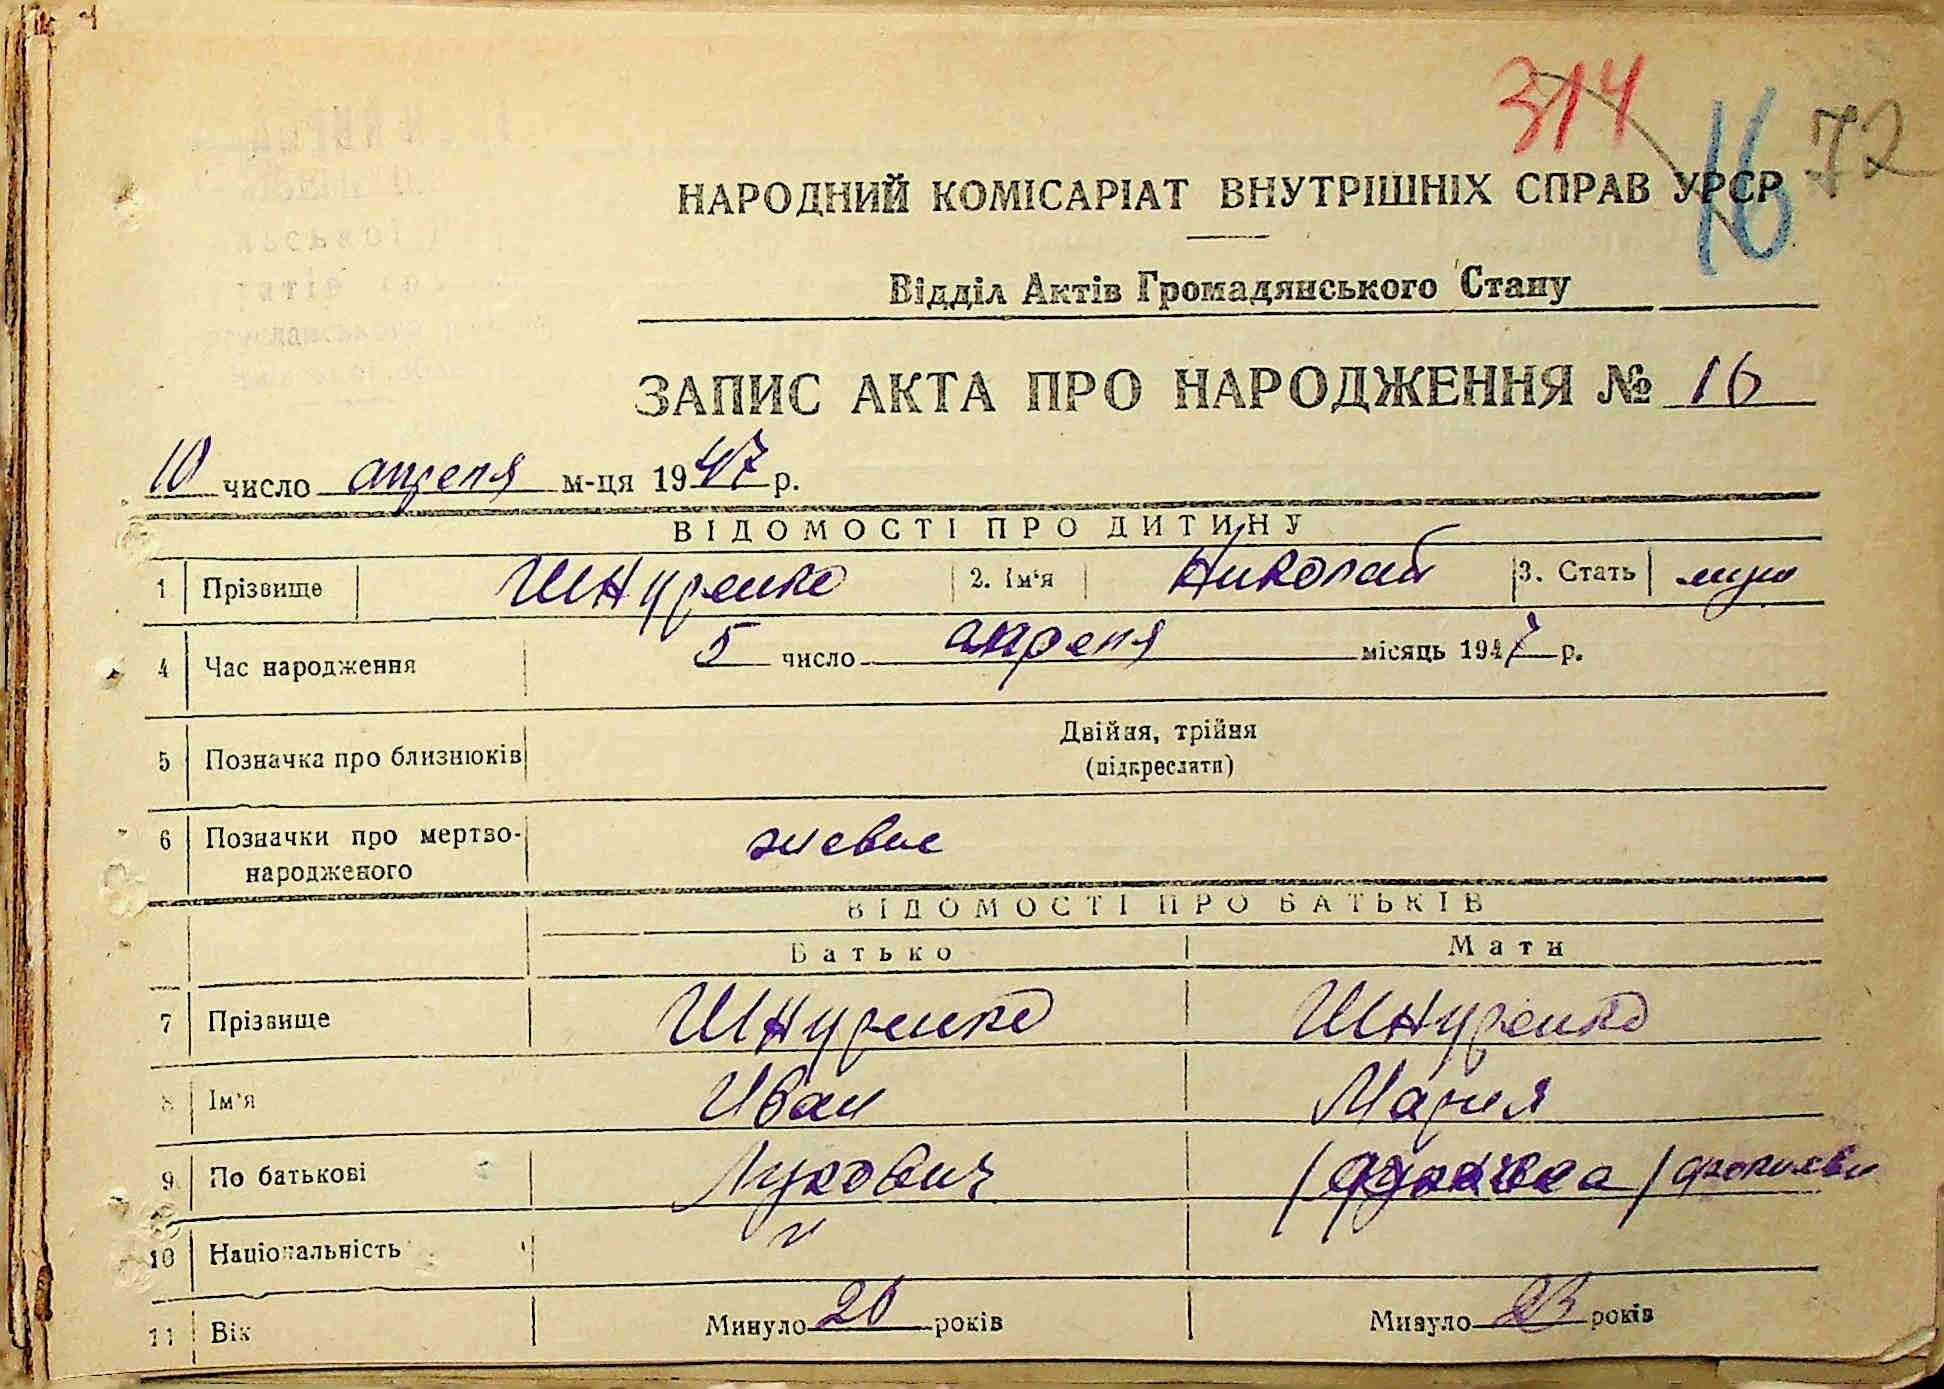 314
16 72
НАРОДНИЙ КОМІСАРІАТ ВНУТРІШНІХ СПРАВ УРСР
Відділ Актів Громадянського Стану
ЗАПИС АКТА ПРО НАРОДЖЕННЯ № 16
10 число апреля м-ця 1947 р.
ВІДОМОСТІ ПРО ДИТИНУ
1 Прізвище Шнуренко 2. Ім'я Николай 3. Стать муж
4 Час народження 5 число апреля місяць 1947 р.
5 Позначка про близнюків Двійня, трійня
(підкреслити)
6 Позначки про мертво-
народженого
ВІДОМОСТІ ПРО БАТЬКІВ
Батько Мати
7 Прізвище Шнуренко Шнуренко
8 Ім'я Иван Мария
9 По батькові Лукович
10 Національність
11 Вік Минуло 20 років Минуло 23 років